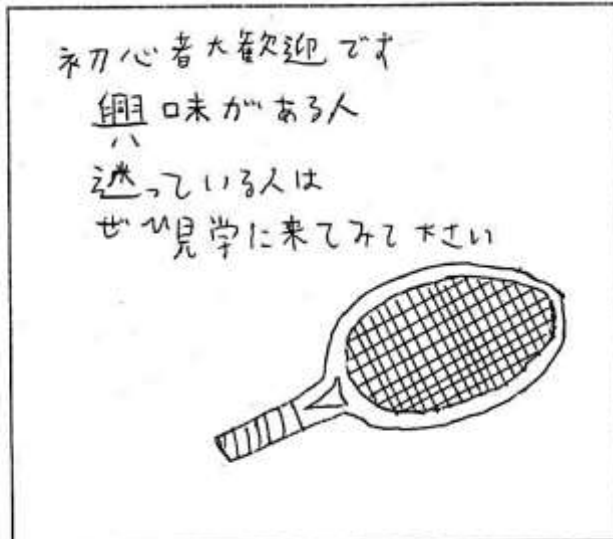 初心者大歓迎です
興味がある人
迷っている人は
ぜひ見学に来てみて下さい